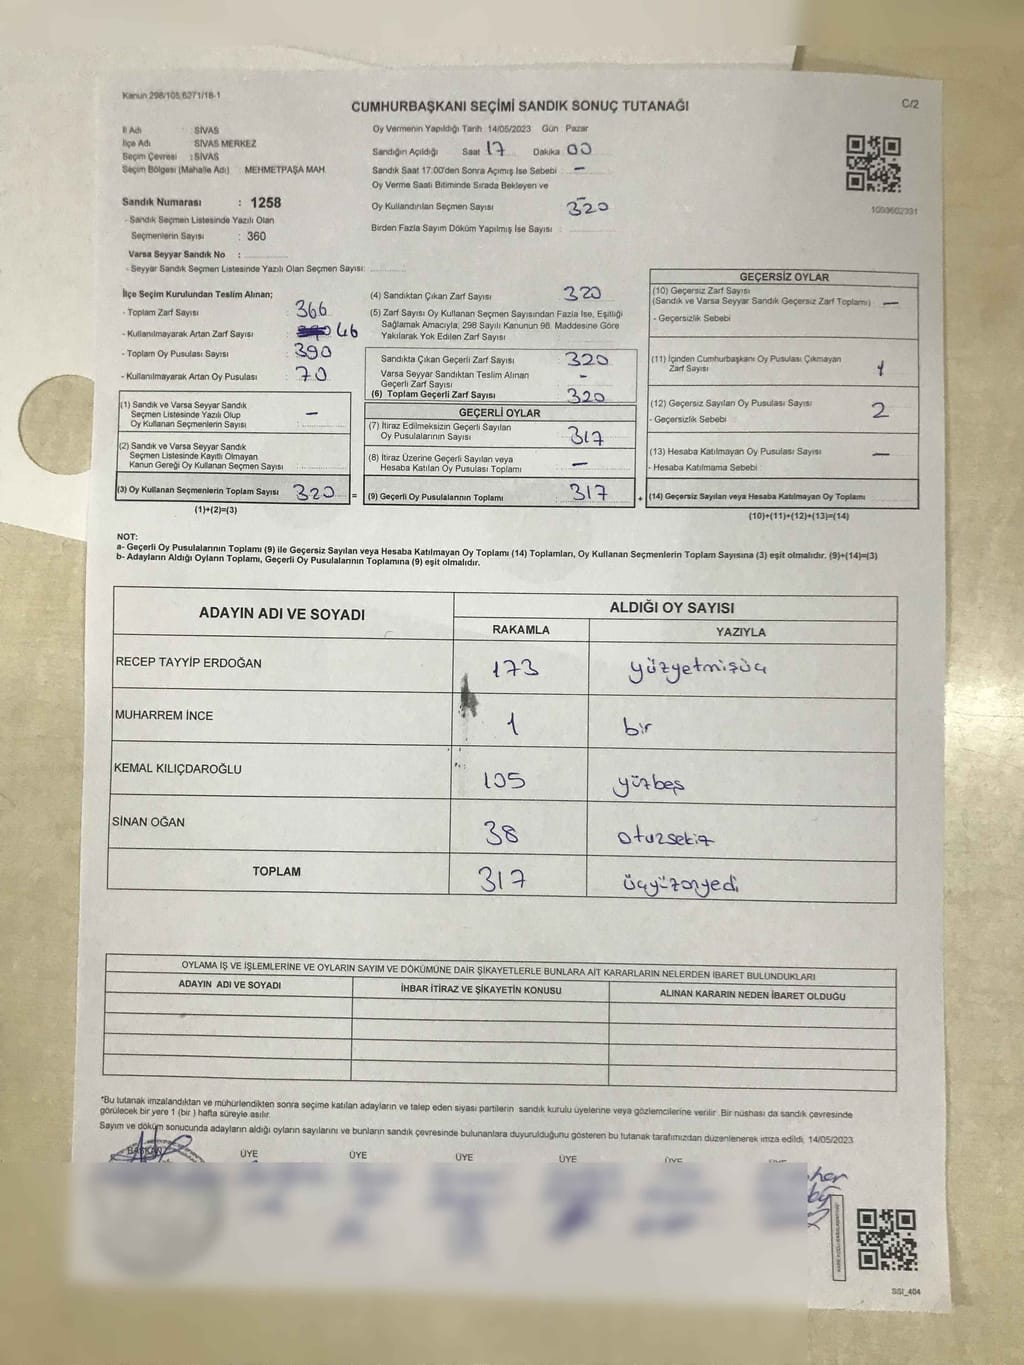 Kanun 298/105,6271/18-1
CUMHURBAŞKANI SEÇİMİ SANDIK SONUÇ TUTANAĞI
C/2
İl Adı : SİVAS
İlçe Adı : SİVAS MERKEZ
Seçim Çevresi : SİVAS
Seçim Bölgesi (Mahalle Adı) : MEHMETPAŞA MAH.
Oy Vermenin Yapıldığı Tarih 14/05/2023 Gün Pazar
Sandığın Açıldığı Saat 17 Dakika 00
Sandık Saat 17:00'den Sonra Açımış İse Sebebi : —
Oy Verme Saati Bitiminde Sırada Bekleyen ve
Oy Kullandırılan Seçmen Sayısı : 320
Birden Fazla Sayım Döküm Yapılmış İse Sayısı :
Sandık Numarası : 1258
- Sandık Seçmen Listesinde Yazılı Olan
Seçmenlerin Sayısı : 360
Varsa Seyyar Sandık No :
- Seyyar Sandık Seçmen Listesinde Yazılı Olan Seçmen Sayısı:
İlçe Seçim Kurulundan Teslim Alınan;
- Toplam Zarf Sayısı : 366
- Kullanılmayarak Artan Zarf Sayısı : 46
- Toplam Oy Pusulası Sayısı : 390
- Kullanılmayarak Artan Oy Pusulası : 70
(1) Sandık ve Varsa Seyyar Sandık
Seçmen Listesinde Yazılı Olup
Oy Kullanan Seçmenlerin Sayısı : —
(2) Sandık ve Varsa Seyyar Sandık
Seçmen Listesinde Kayıtlı Olmayan
Kanun Gereği Oy Kullanan Seçmen Sayısı
(3) Oy Kullanan Seçmenlerin Toplam Sayısı 320 =
(1)+(2)=(3)
(4) Sandıktan Çıkan Zarf Sayısı : 320
(5) Zarf Sayısı Oy Kullanan Seçmen Sayısından Fazla İse, Eşitliği
Sağlamak Amacıyla; 298 Sayılı Kanunun 98. Maddesine Göre
Yakılarak Yok Edilen Zarf Sayısı
Sandıkta Çıkan Geçerli Zarf Sayısı : 320
Varsa Seyyar Sandıktan Teslim Alınan
Geçerli Zarf Sayısı : —
(6) Toplam Geçerli Zarf Sayısı : 320
GEÇERLİ OYLAR
(7) İtiraz Edilmeksizin Geçerli Sayılan
Oy Pusulalarının Sayısı : 317
(8) İtiraz Üzerine Geçerli Sayılan veya
Hesaba Katılan Oy Pusulası Toplamı : —
(9) Geçerli Oy Pusulalarının Toplamı : 317 +
GEÇERSİZ OYLAR
(10) Geçersiz Zarf Sayısı
(Sandık ve Varsa Seyyar Sandık Geçersiz Zarf Toplamı) : —
- Geçersizlik Sebebi
(11) İçinden Cumhurbaşkanı Oy Pusulası Çıkmayan
Zarf Sayısı : 1
(12) Geçersiz Sayılan Oy Pusulası Sayısı : 2
- Geçersizlik Sebebi
(13) Hesaba Katılmayan Oy Pusulası Sayısı : —
- Hesaba Katılmama Sebebi
(14) Geçersiz Sayılan veya Hesaba Katılmayan Oy Toplamı
(10)+(11)+(12)+(13)=(14)
NOT:
a- Geçerli Oy Pusulalarının Toplamı (9) ile Geçersiz Sayılan veya Hesaba Katılmayan Oy Toplamı (14) Toplamları, Oy Kullanan Seçmenlerin Toplam Sayısına (3) eşit olmalıdır. (9)+(14)=(3)
b- Adayların Aldığı Oyların Toplamı, Geçerli Oy Pusulalarının Toplamına (9) eşit olmalıdır.
ADAYIN ADI VE SOYADI
ALDIĞI OY SAYISI
RAKAMLA YAZIYLA
RECEP TAYYİP ERDOĞAN 173 yüzyetmişüç
MUHARREM İNCE 1 bir
KEMAL KILIÇDAROĞLU 105 yüzbeş
SİNAN OĞAN 38 otuzsekiz
TOPLAM 317 üçyüzonyedi
OYLAMA İŞ VE İŞLEMLERİNE VE OYLARIN SAYIM VE DÖKÜMÜNE DAİR ŞİKAYETLERLE BUNLARA AİT KARARLARIN NELERDEN İBARET BULUNDUKLARI
ADAYIN ADI VE SOYADI İHBAR İTİRAZ VE ŞİKAYETİN KONUSU ALINAN KARARIN NEDEN İBARET OLDUĞU
*Bu tutanak imzalandıktan ve mühürlendikten sonra seçime katılan adayların ve talep eden siyasi partilerin sandık kurulu üyelerine veya gözlemcilerine verilir. Bir nüshası da sandık çevresinde
görülecek bir yere 1 (bir ) hafta süreyle asılır.
Sayım ve döküm sonucunda adayların aldığı oyların sayılarını ve bunların sandık çevresinde bulunanlara duyurulduğunu gösteren bu tutanak tarafımızdan düzenlenerek imza edildi. 14/05/2023
BAŞKAN ÜYE ÜYE ÜYE ÜYE ÜYE
SSI_404